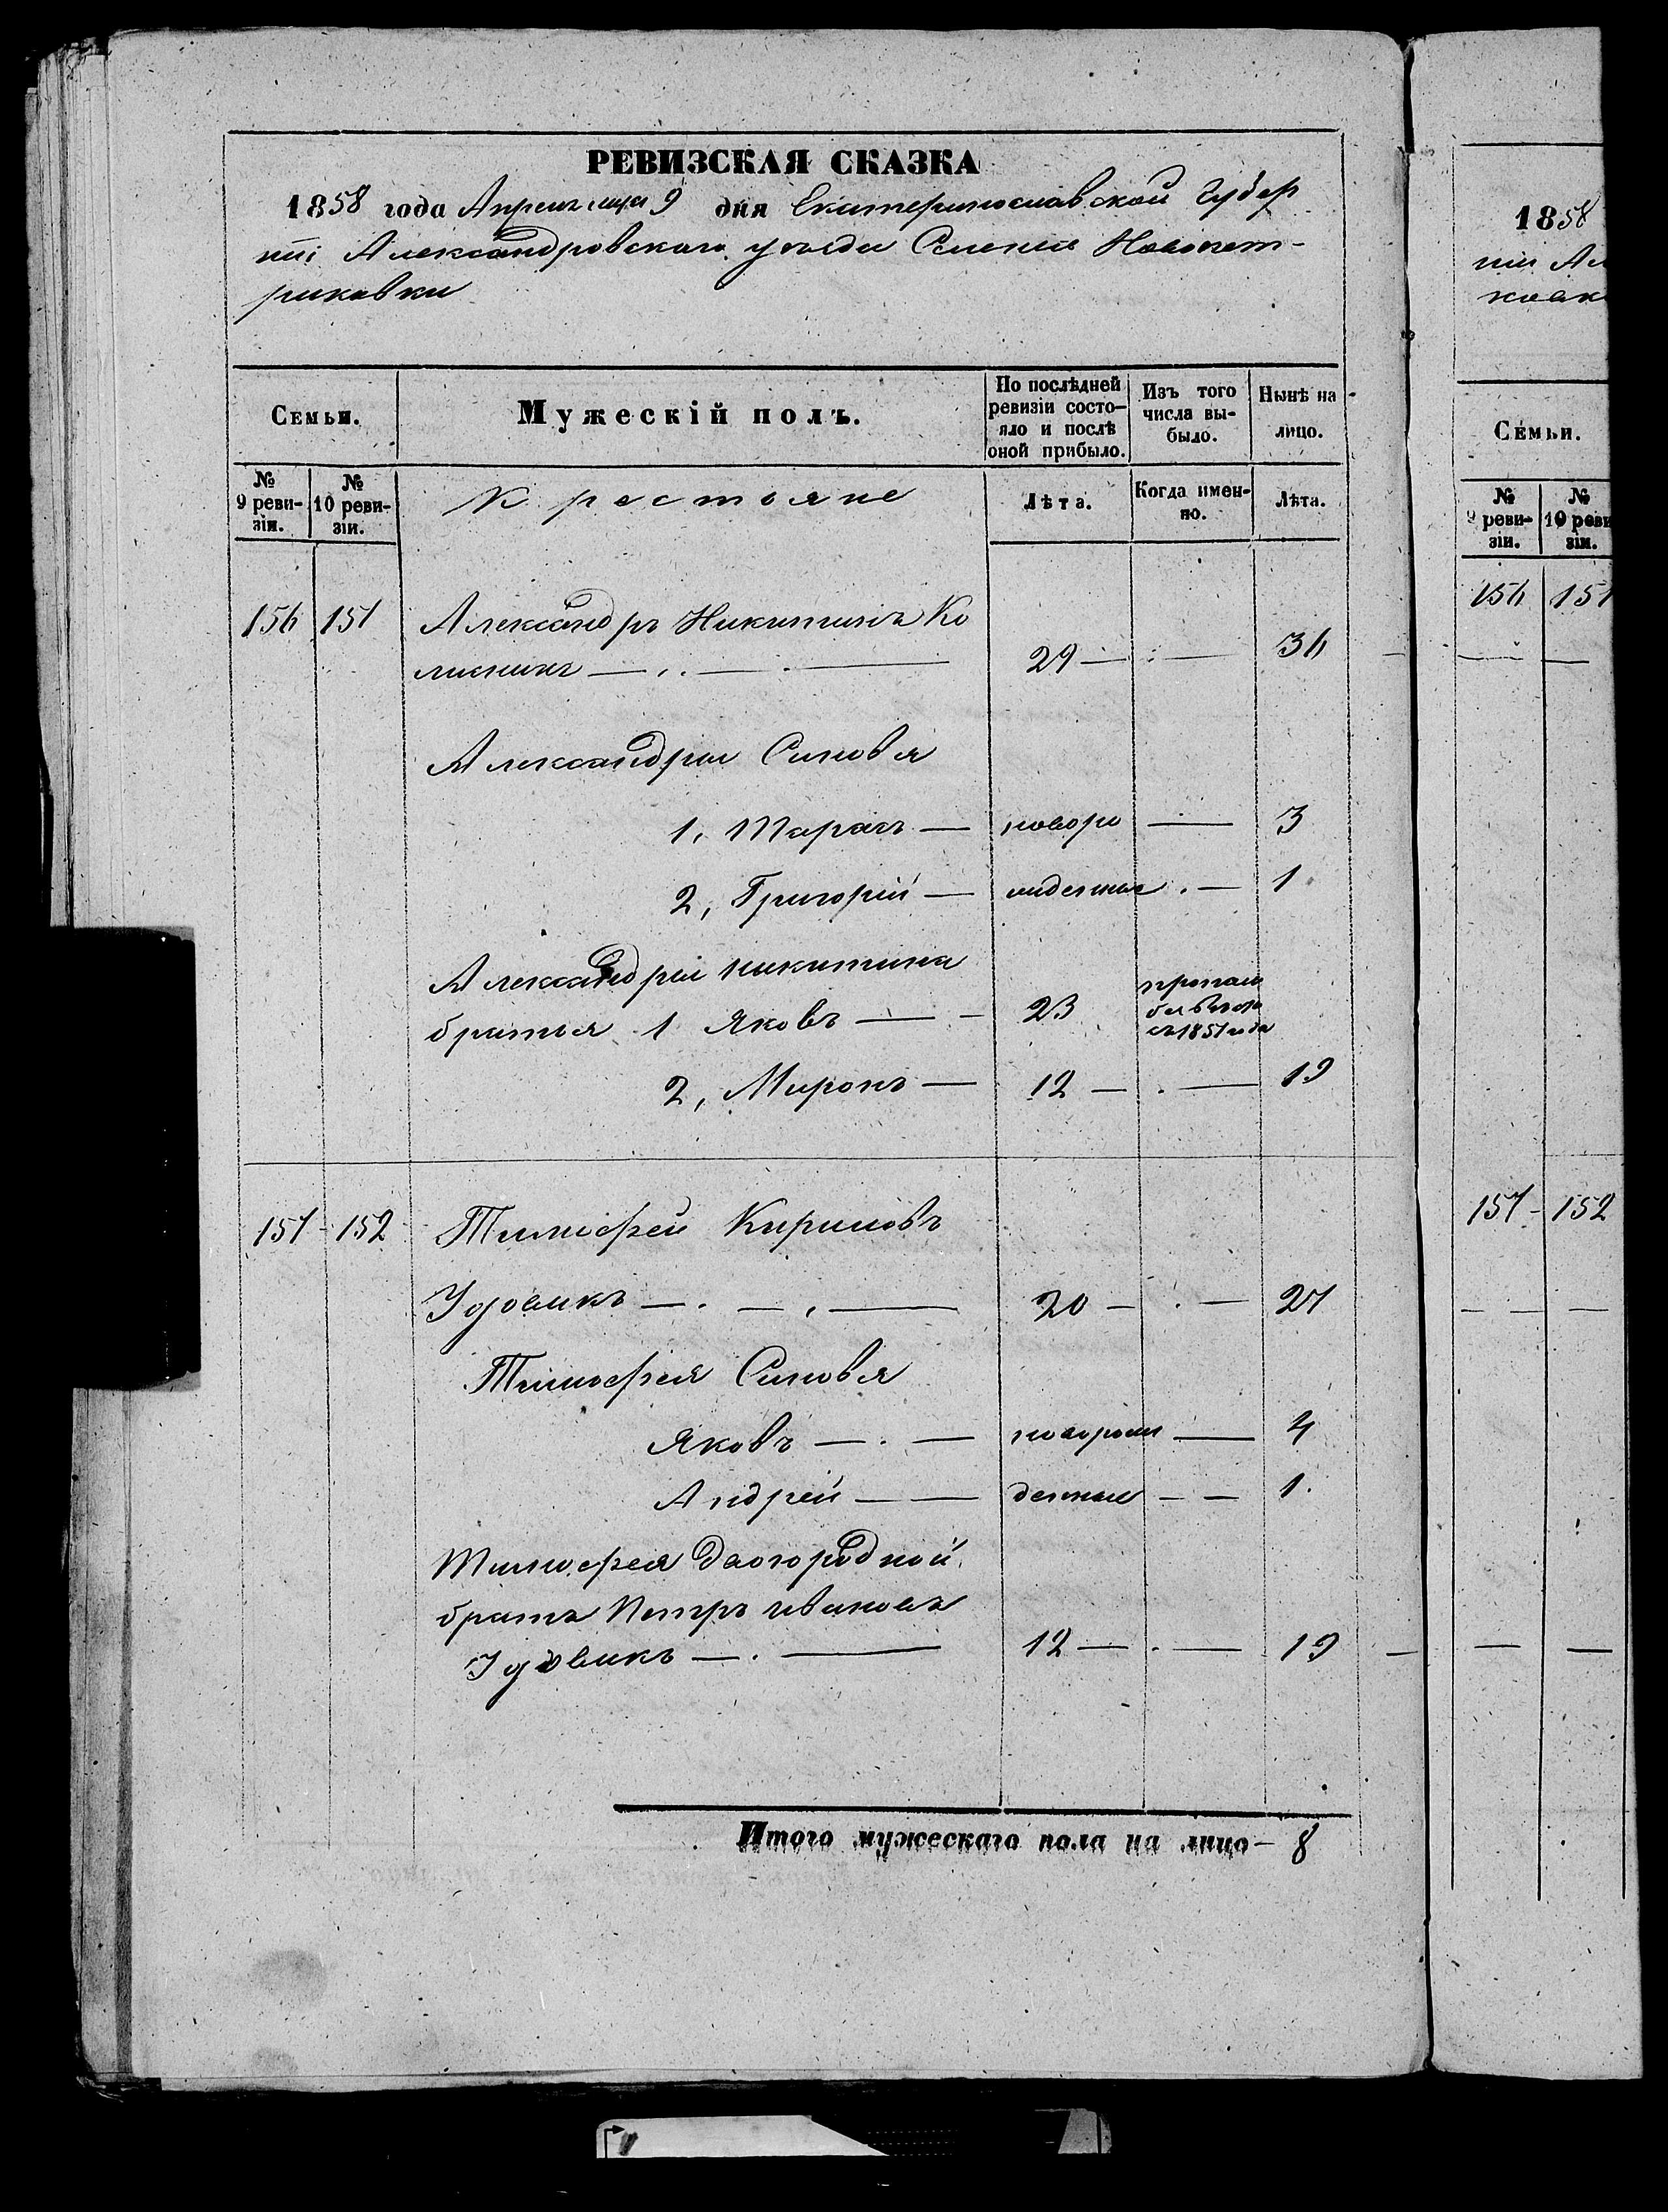 РЕВИЗСКАЯ СКАЗКА
1858 года Апреля месяца 9 дня Екатеринославской Губер
нii Александровского уезда Селения Новопет-
риковки
Семьи.
Мужескiй полъ.
По послѣдней ревизiи состо-яло и послѣ оной прибыло.
Изъ того числа вы-было.
Нынѣ на лицо.
№ 9 реви-зiи.
№ 10 реви-зiи.
Крестьяне
Лѣта.
Когда имен-но.
Лѣта.
156 151 Александръ Никитинъ Ко
лисникъ 29 36
Александра Сыновья
1, Тарасъ новоро 3
2, Григорiй жденные 1
Александра Никитина
братья 1 Яковъ 23 пропал без вести съ 1851 года
2, Миронъ 12 19
157 152 Тимофей Кириловъ
Удовикъ 20 27
Тимофея Сыновья
Яковъ новорож 4
Андрей денные 1
Тимофея двогородной
братъ Петръ Ивановъ
Удовикъ 12 19
Итого мужескаго пола на лицо 8
1858
нiи Ал
Семьи.
№ 9 реви-зiи.
№ 10 реви зiи.
156 151
157 152